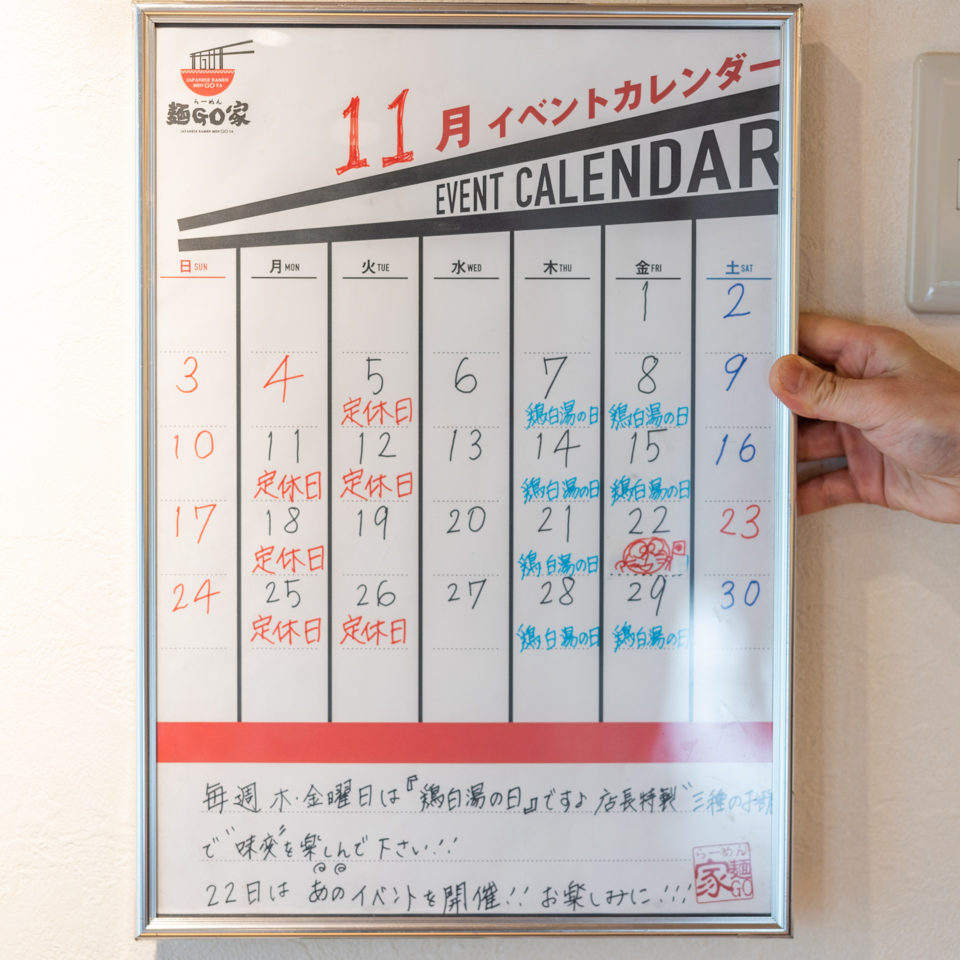 JAPANESE RAMEN
MEN GO YA
らーめん
麺GO家
JAPANESE RAMEN MEN GO YA
11月イベントカレンダー
EVENT CALENDAR
日SUN 月MON 火TUE 水WED 木THU 金FRI 土SAT
1 2
3 4 5 6 7 8 9
定休日 鶏白湯の日 鶏白湯の日
10 11 12 13 14 15 16
定休日 定休日 鶏白湯の日 鶏白湯の日
17 18 19 20 21 22 23
定休日 鶏白湯の日
24 25 26 27 28 29 30
定休日 定休日 鶏白湯の日 鶏白湯の日
毎週 木・金曜日は『鶏白湯の日』ですよ 店長特製"三種の
で"味変"を楽しんで下さい!!
22日は あのイベントを開催!! お楽しみに!!!
らーめん
家麺GO